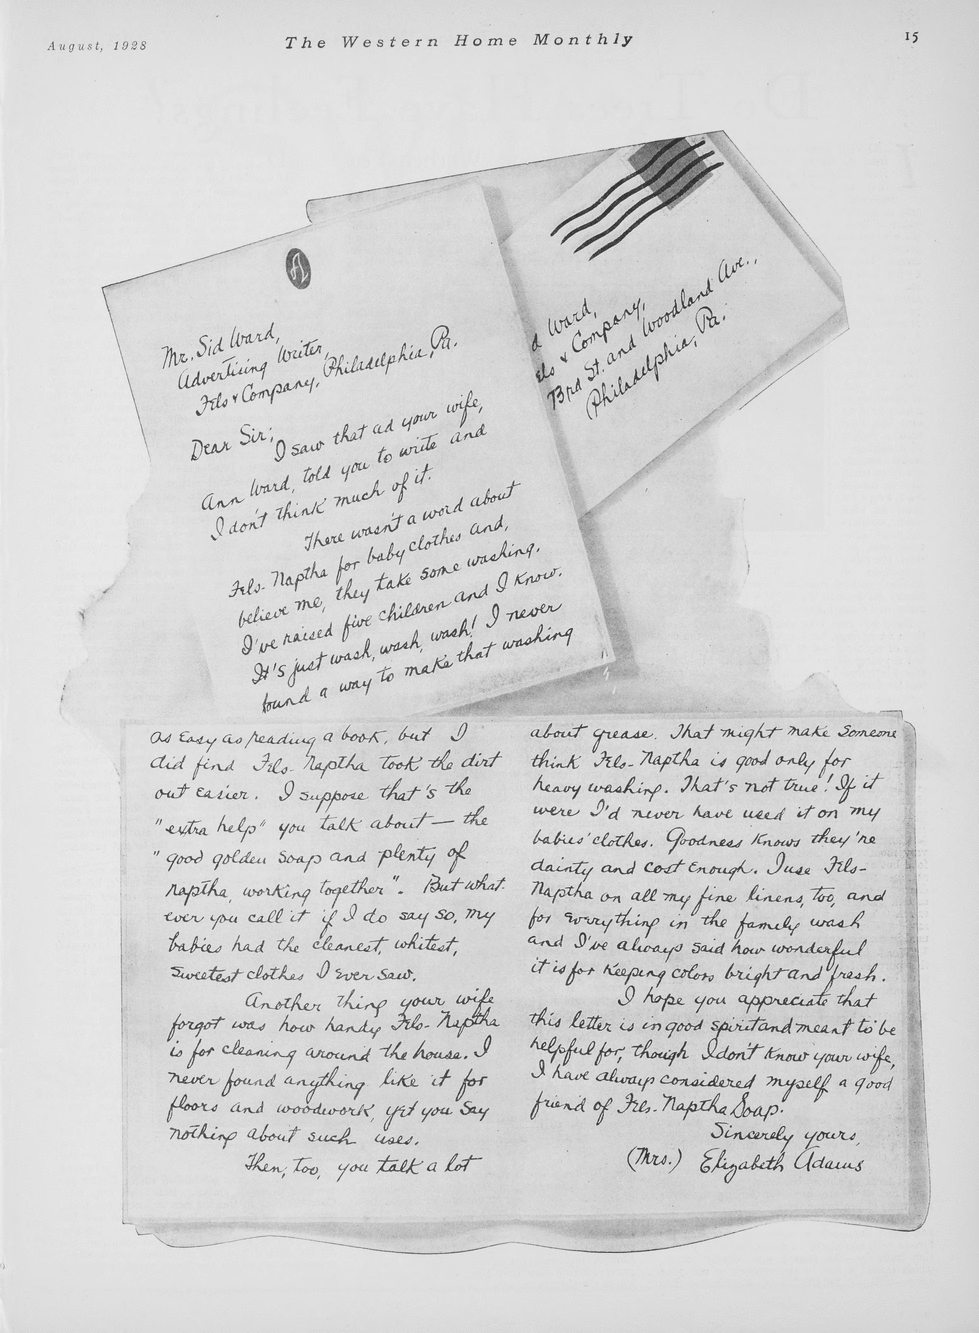 August, 1928
The Western Home Monthly
15
A
Mr. Sid Ward,
Advertising Writer,
Fels & Company, Philadelphia, Pa.
Dear Sir;
I saw that ad your wife,
Ann Ward, told you to write and
I don't think much of it.
There wasn't a word about
Fels-Naptha for baby clothes and,
believe me, they take some washing.
I've raised five children and I know.
It's just wash, wash, wash! I never
found a way to make that washing
d Ward,
els & Company,
73rd St. and Woodland Ave.,
Philadelphia, Pa.
as easy as reading a book, but I
did find Fels-Naptha took the dirt
out easier. I suppose that's the
"extra help" you talk about — the
"good golden soap and plenty of
naptha, working together". But what-
ever you call it if I do say so, my
babies had the cleanest, whitest,
sweetest clothes I ever saw.
Another thing your wife
forgot was how handy Fels-Naptha
is for cleaning around the house. I
never found anything like it for
floors and woodwork, yet you say
nothing about such uses.
Then, too, you talk a lot
about grease. That might make someone
think Fels-Naptha is good only for
heavy washing. That's not true! If it
were I'd never have used it on my
babies' clothes. Goodness knows they're
dainty and cost enough. I use Fels-
Naptha on all my fine linens, too, and
for everything in the family wash
and I've always said how wonderful
it is for keeping colors bright and fresh.
I hope you appreciate that
this letter is in good spirit and meant to be
helpful for, though I don't know your wife,
I have always considered myself a good
friend of Fels-Naptha Soap.
Sincerely yours,
(Mrs.) Elizabeth Adams